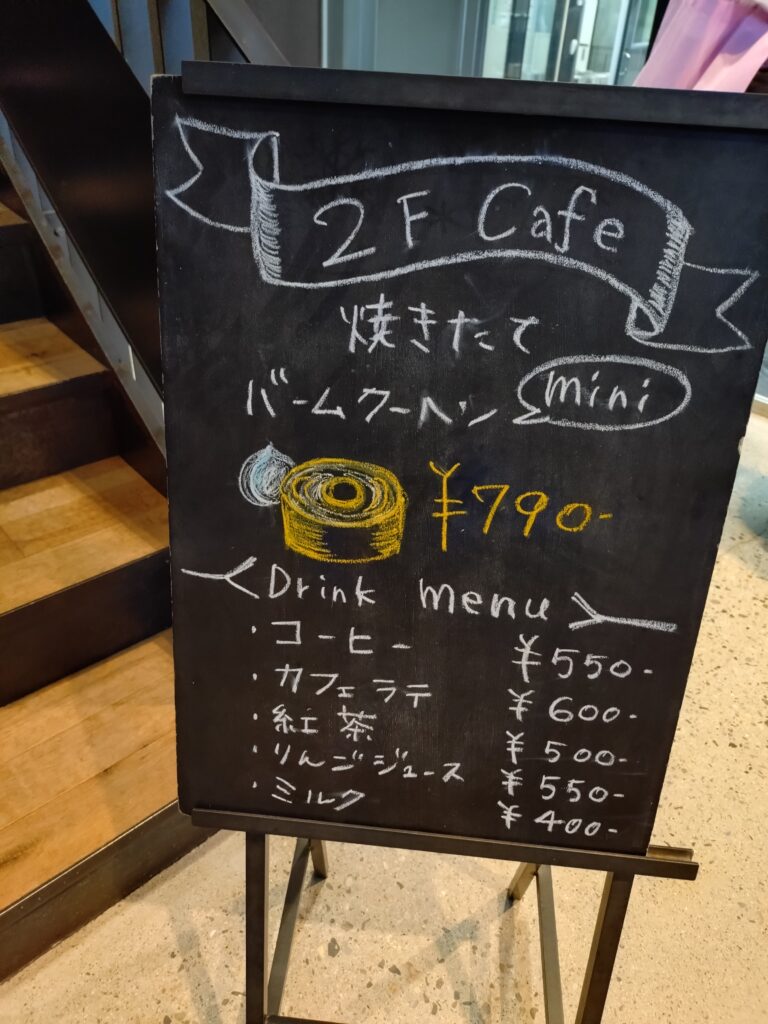 2F Cafe
焼きたて
バームクーヘン mini
¥790-
Drink menu
・コーヒー ¥550-
・カフェラテ ¥600-
・紅茶 ¥500-
・りんごジュース ¥550-
・ミルク ¥400-